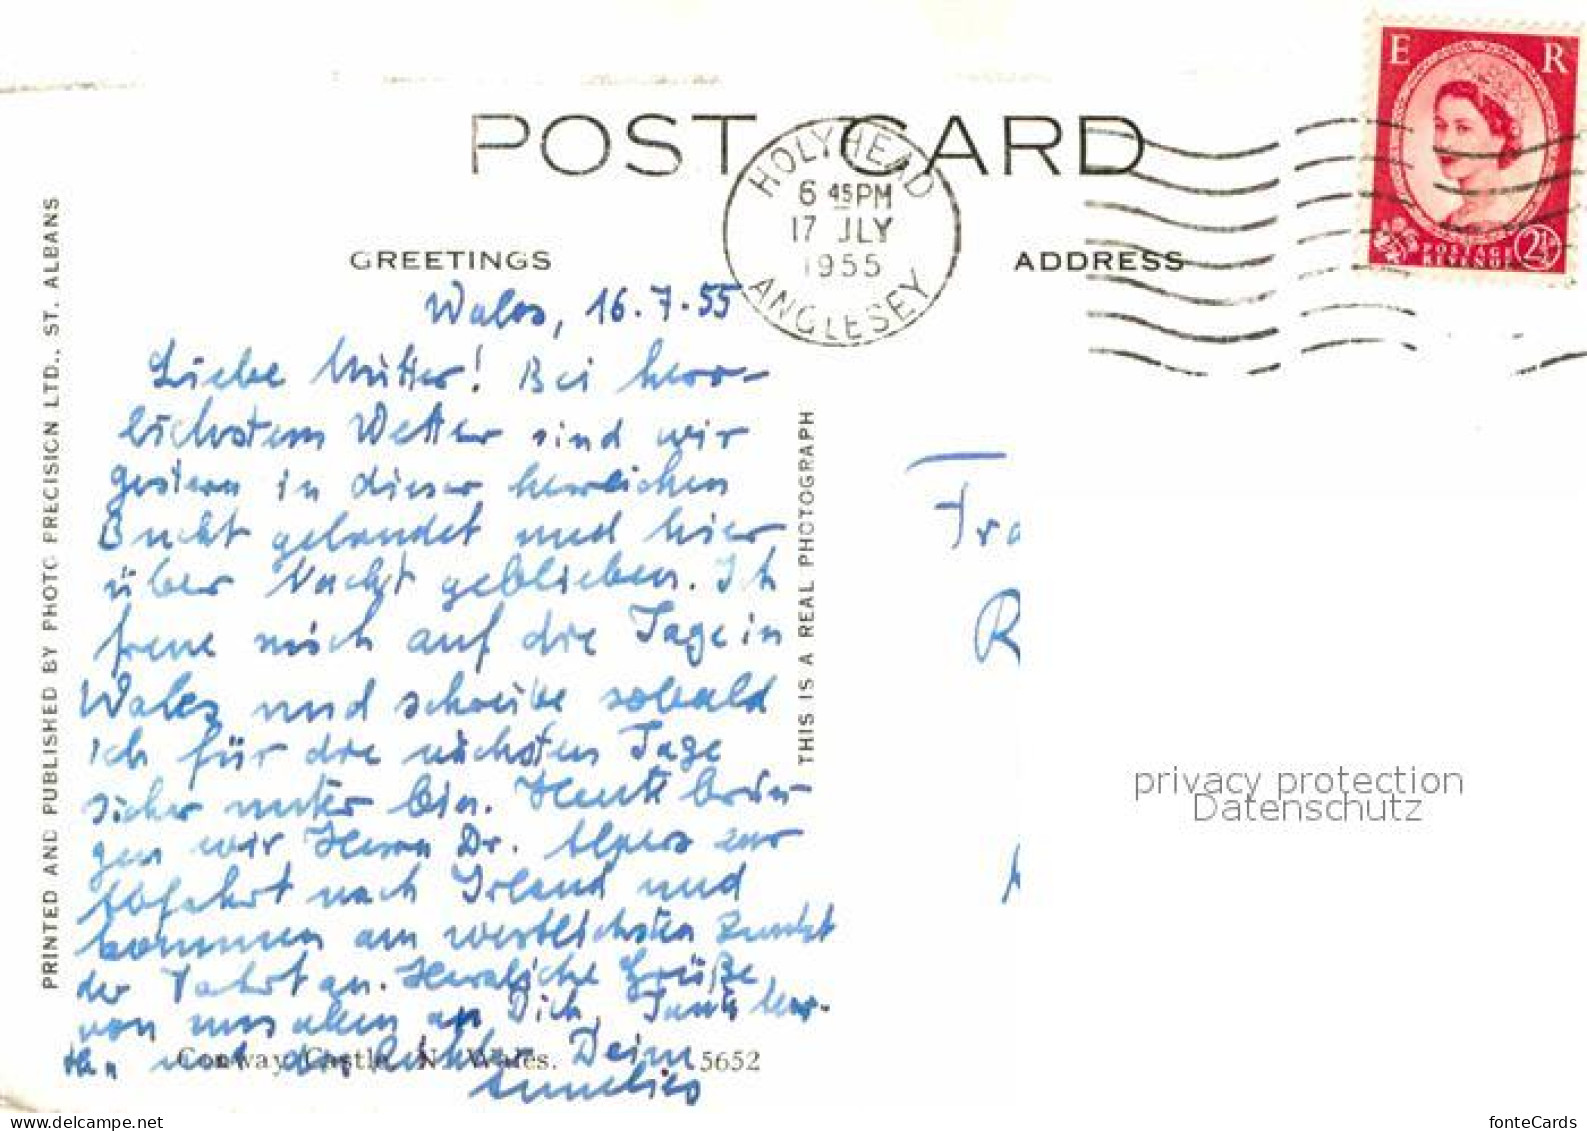 POST CARD
HOLYHEAD
6 45 PM
17 JLY
1955
ANGLESEY
E R
POSTAGE
REVENUE
2½
GREETINGS
ADDRESS
PRINTED AND PUBLISHED BY PHOTO PRECISION LTD., ST. ALBANS
THIS IS A REAL PHOTOGRAPH
Wales, 16.7.55
Liebe Mutter! Bei herr-
lichstem Wetter sind wir
gestern in dieser herrlichen
Bucht gelandet und hier
über Nacht geblieben. Ich
freue mich auf die Tage in
Wales und schreibe sobald
ich für die nächsten Tage
sicher unter bin. Heute brin-
gen wir Herrn Dr. zur
Abfahrt nach Irland und
kommen am westlichsten Punkt
der Fahrt an. Herzliche Grüße
von uns allen an Dich, Tante
und Deine
Annelies
Conway Castle, N. Wales.
5652
Fra
R
privacy protection
Datenschutz
www.delcampe.net
fonteCards